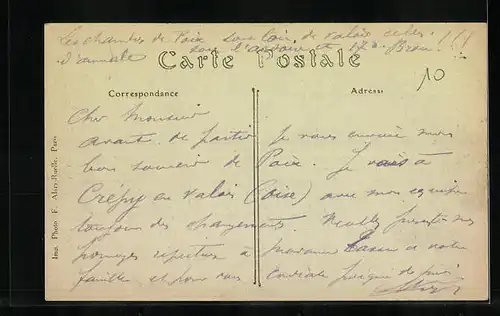 Les chambres de Poix sont loin de valoir celles !!!
d'Aumale
Carte Postale
10
Correspondance
Adresse
Cher Monsieur
avant de partir je vous envoie mon
bon souvenir de Poix. Je vais à
Crépy en Valois (Oise) avec mon équipe
toujours des changements. Veuillez présenter mes
hommages respectueux à Madame et votre
famille et pour vous cordiale poignée de main
Imp. Photo F. Paris